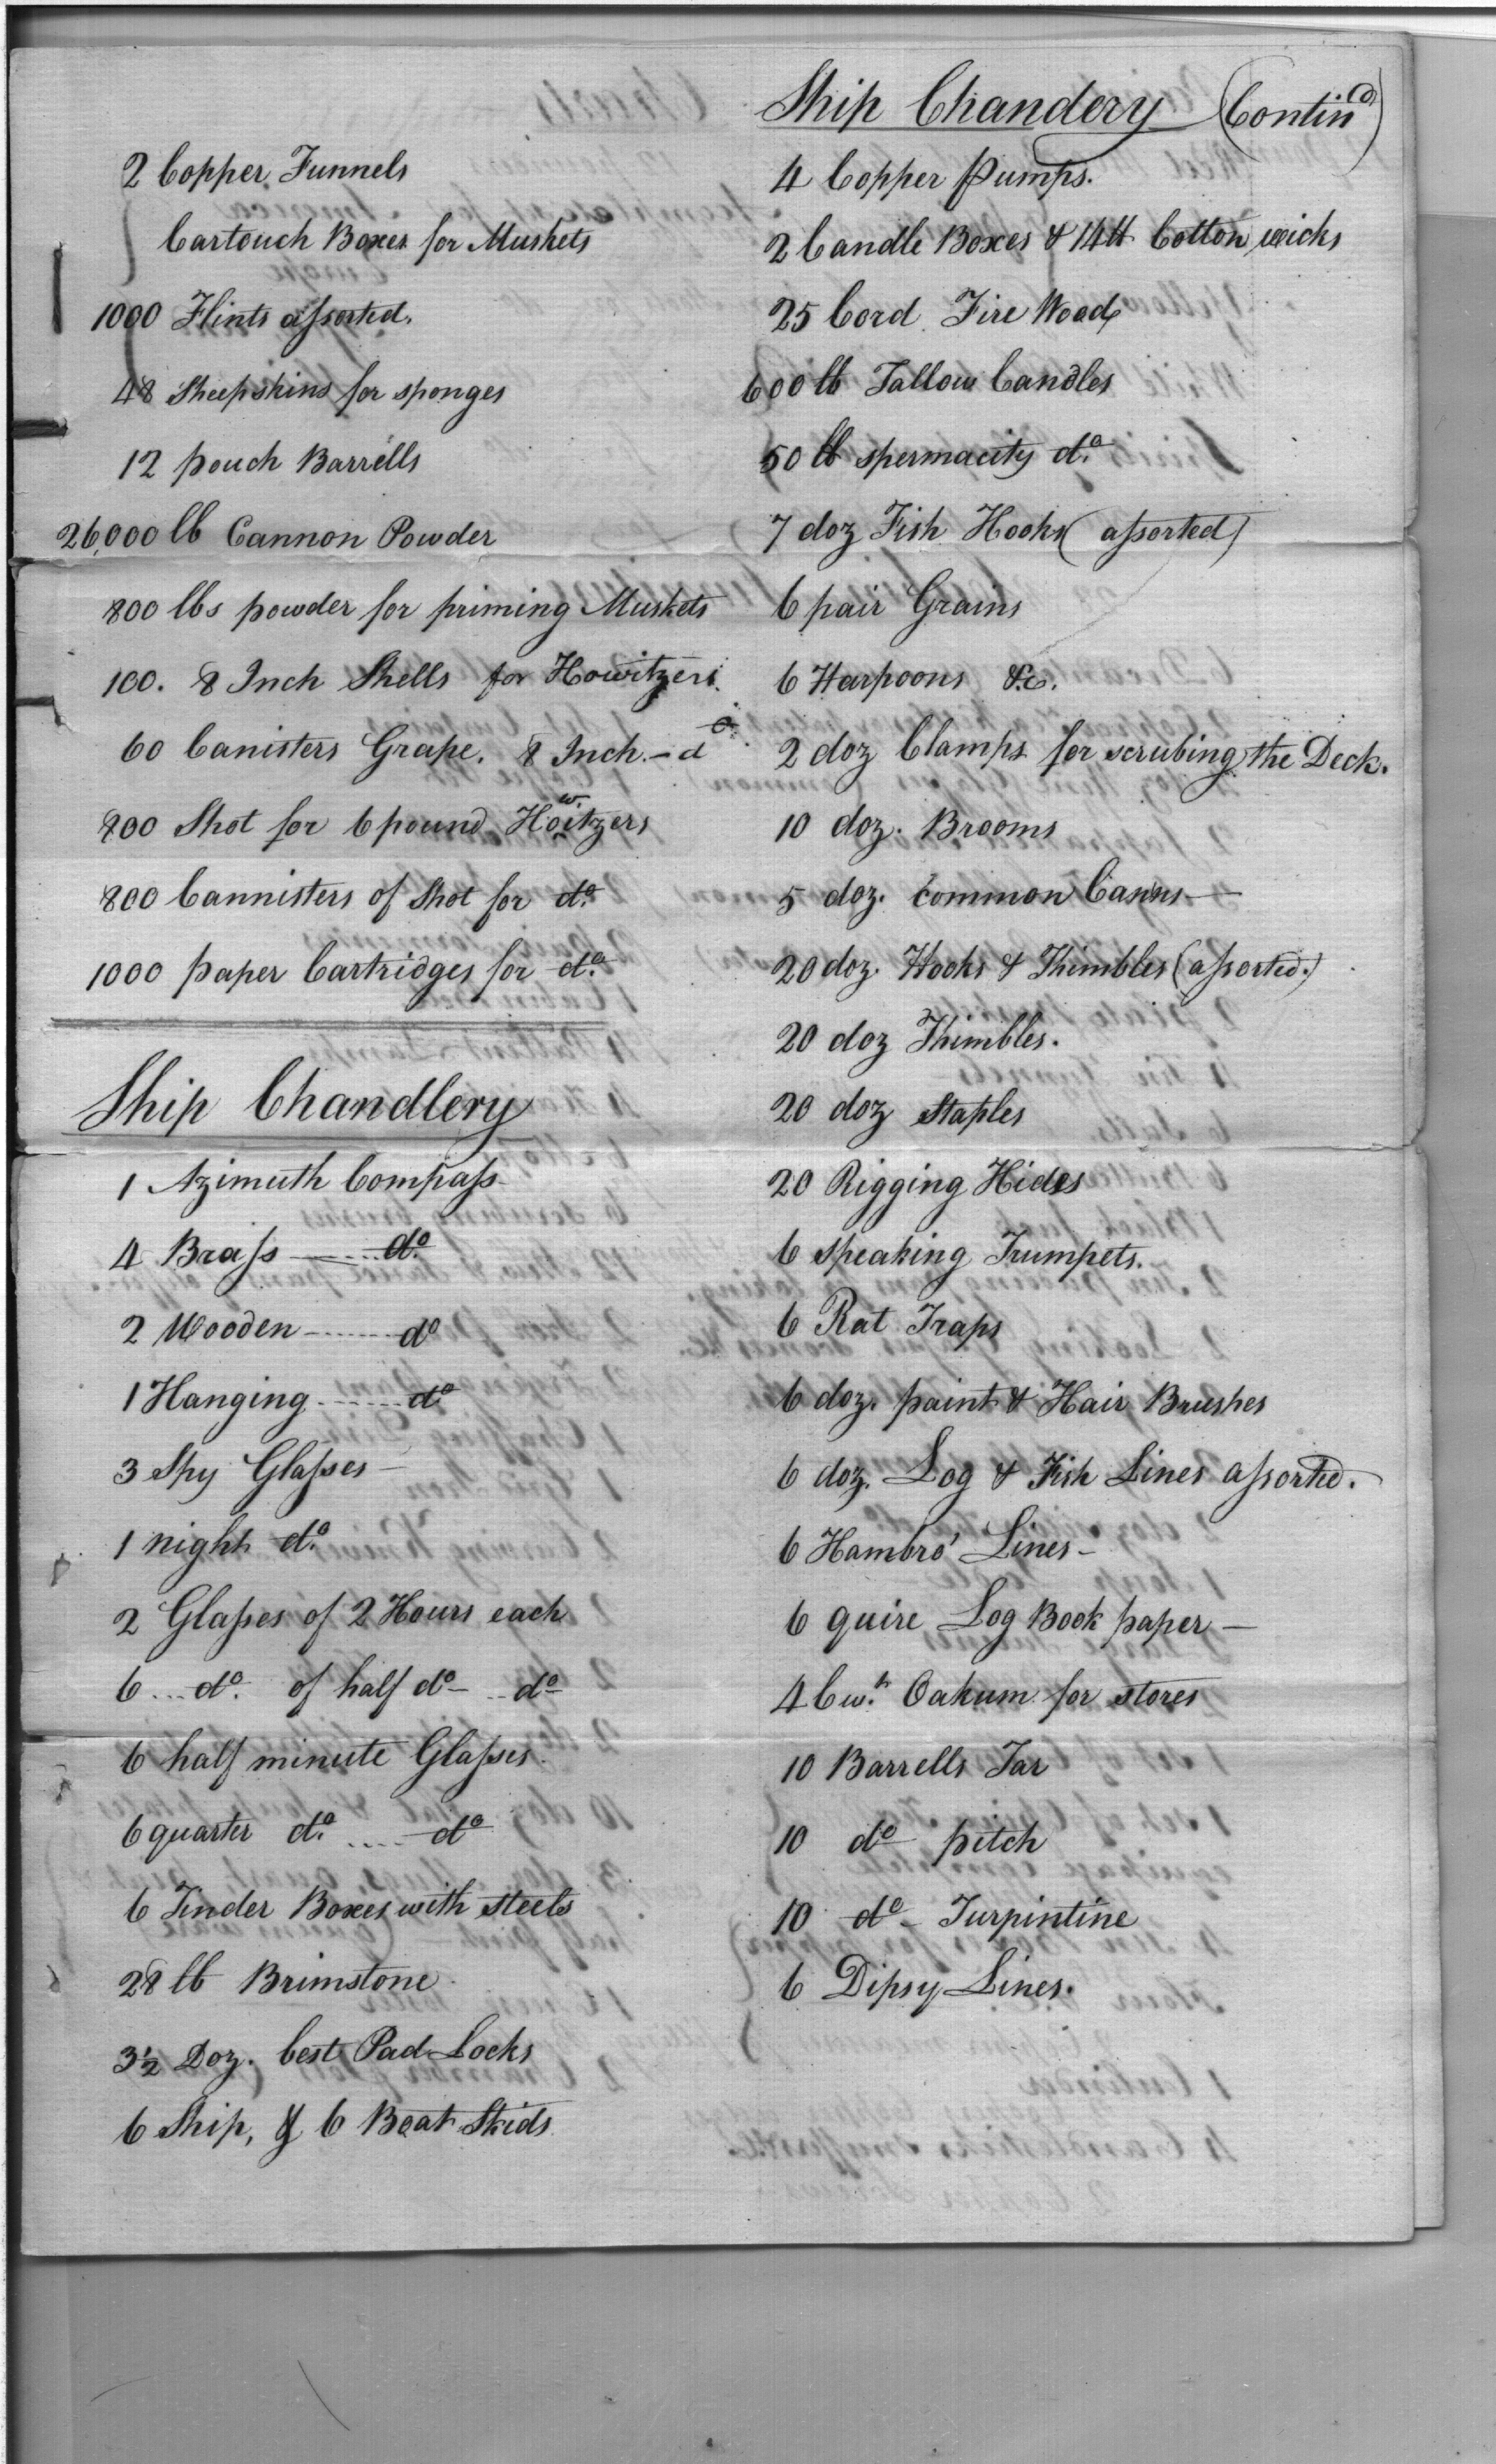 2 Copper Funnels
Cartouch Boxes for Muskets
1000 Flints assorted.
48 Sheepskins for sponges
12 pouch Barrells
26,000 lb Cannon Powder
800 lbs powder for priming Muskets
100. 8 Inch Shells for Howitzers.
60 Canisters Grape. 8 Inch. - do
800 Shot for 6 pound Howitzers
800 Cannisters of Shot for do.
1000 paper Cartridges for do.
Ship Chandlery
1 Azimuth Compass
4 Brass ... do.
2 Wooden ... do
1 Hanging ... do
3 Spy Glasses -
1 night do.
2 Glasses of 2 Hours each
6 ... do. of half do - .. do
6 half minute Glasses.
6 quarter do. .... do
6 Tinder Boxes with steels
28 lb Brimstone.
3½ Doz. best Pad-Locks
6 Ship, & 6 Boat Skids
Ship Chandery (Contind)
4 Copper Pumps.
2 Candle Boxes & 14 lb Cotton wicks
25 Cord Fire Wood
600 lb Tallow Candles
50 lb spermacity do.
7 doz Fish Hooks (assorted)
6 pair Grains
6 Harpoons &c.
2 doz Clamps for scrubing the Deck.
10 doz. Brooms
5 doz. common Canns -
20 doz. Hooks & Thimbles (assorted.)
20 doz Thimbles.
20 doz Staples
20 Rigging Hides
6 speaking Trumpets.
6 Rat Traps
6 doz. paint & Hair Brushes
6 doz. Log & Fish Lines assorted.
6 Hambro' Lines -
6 quire Log Book paper -
4 Cwt. Oakum for stores
10 Barrells Tar
10 do pitch
10 do - Turpintine
6 Dipsy Lines.